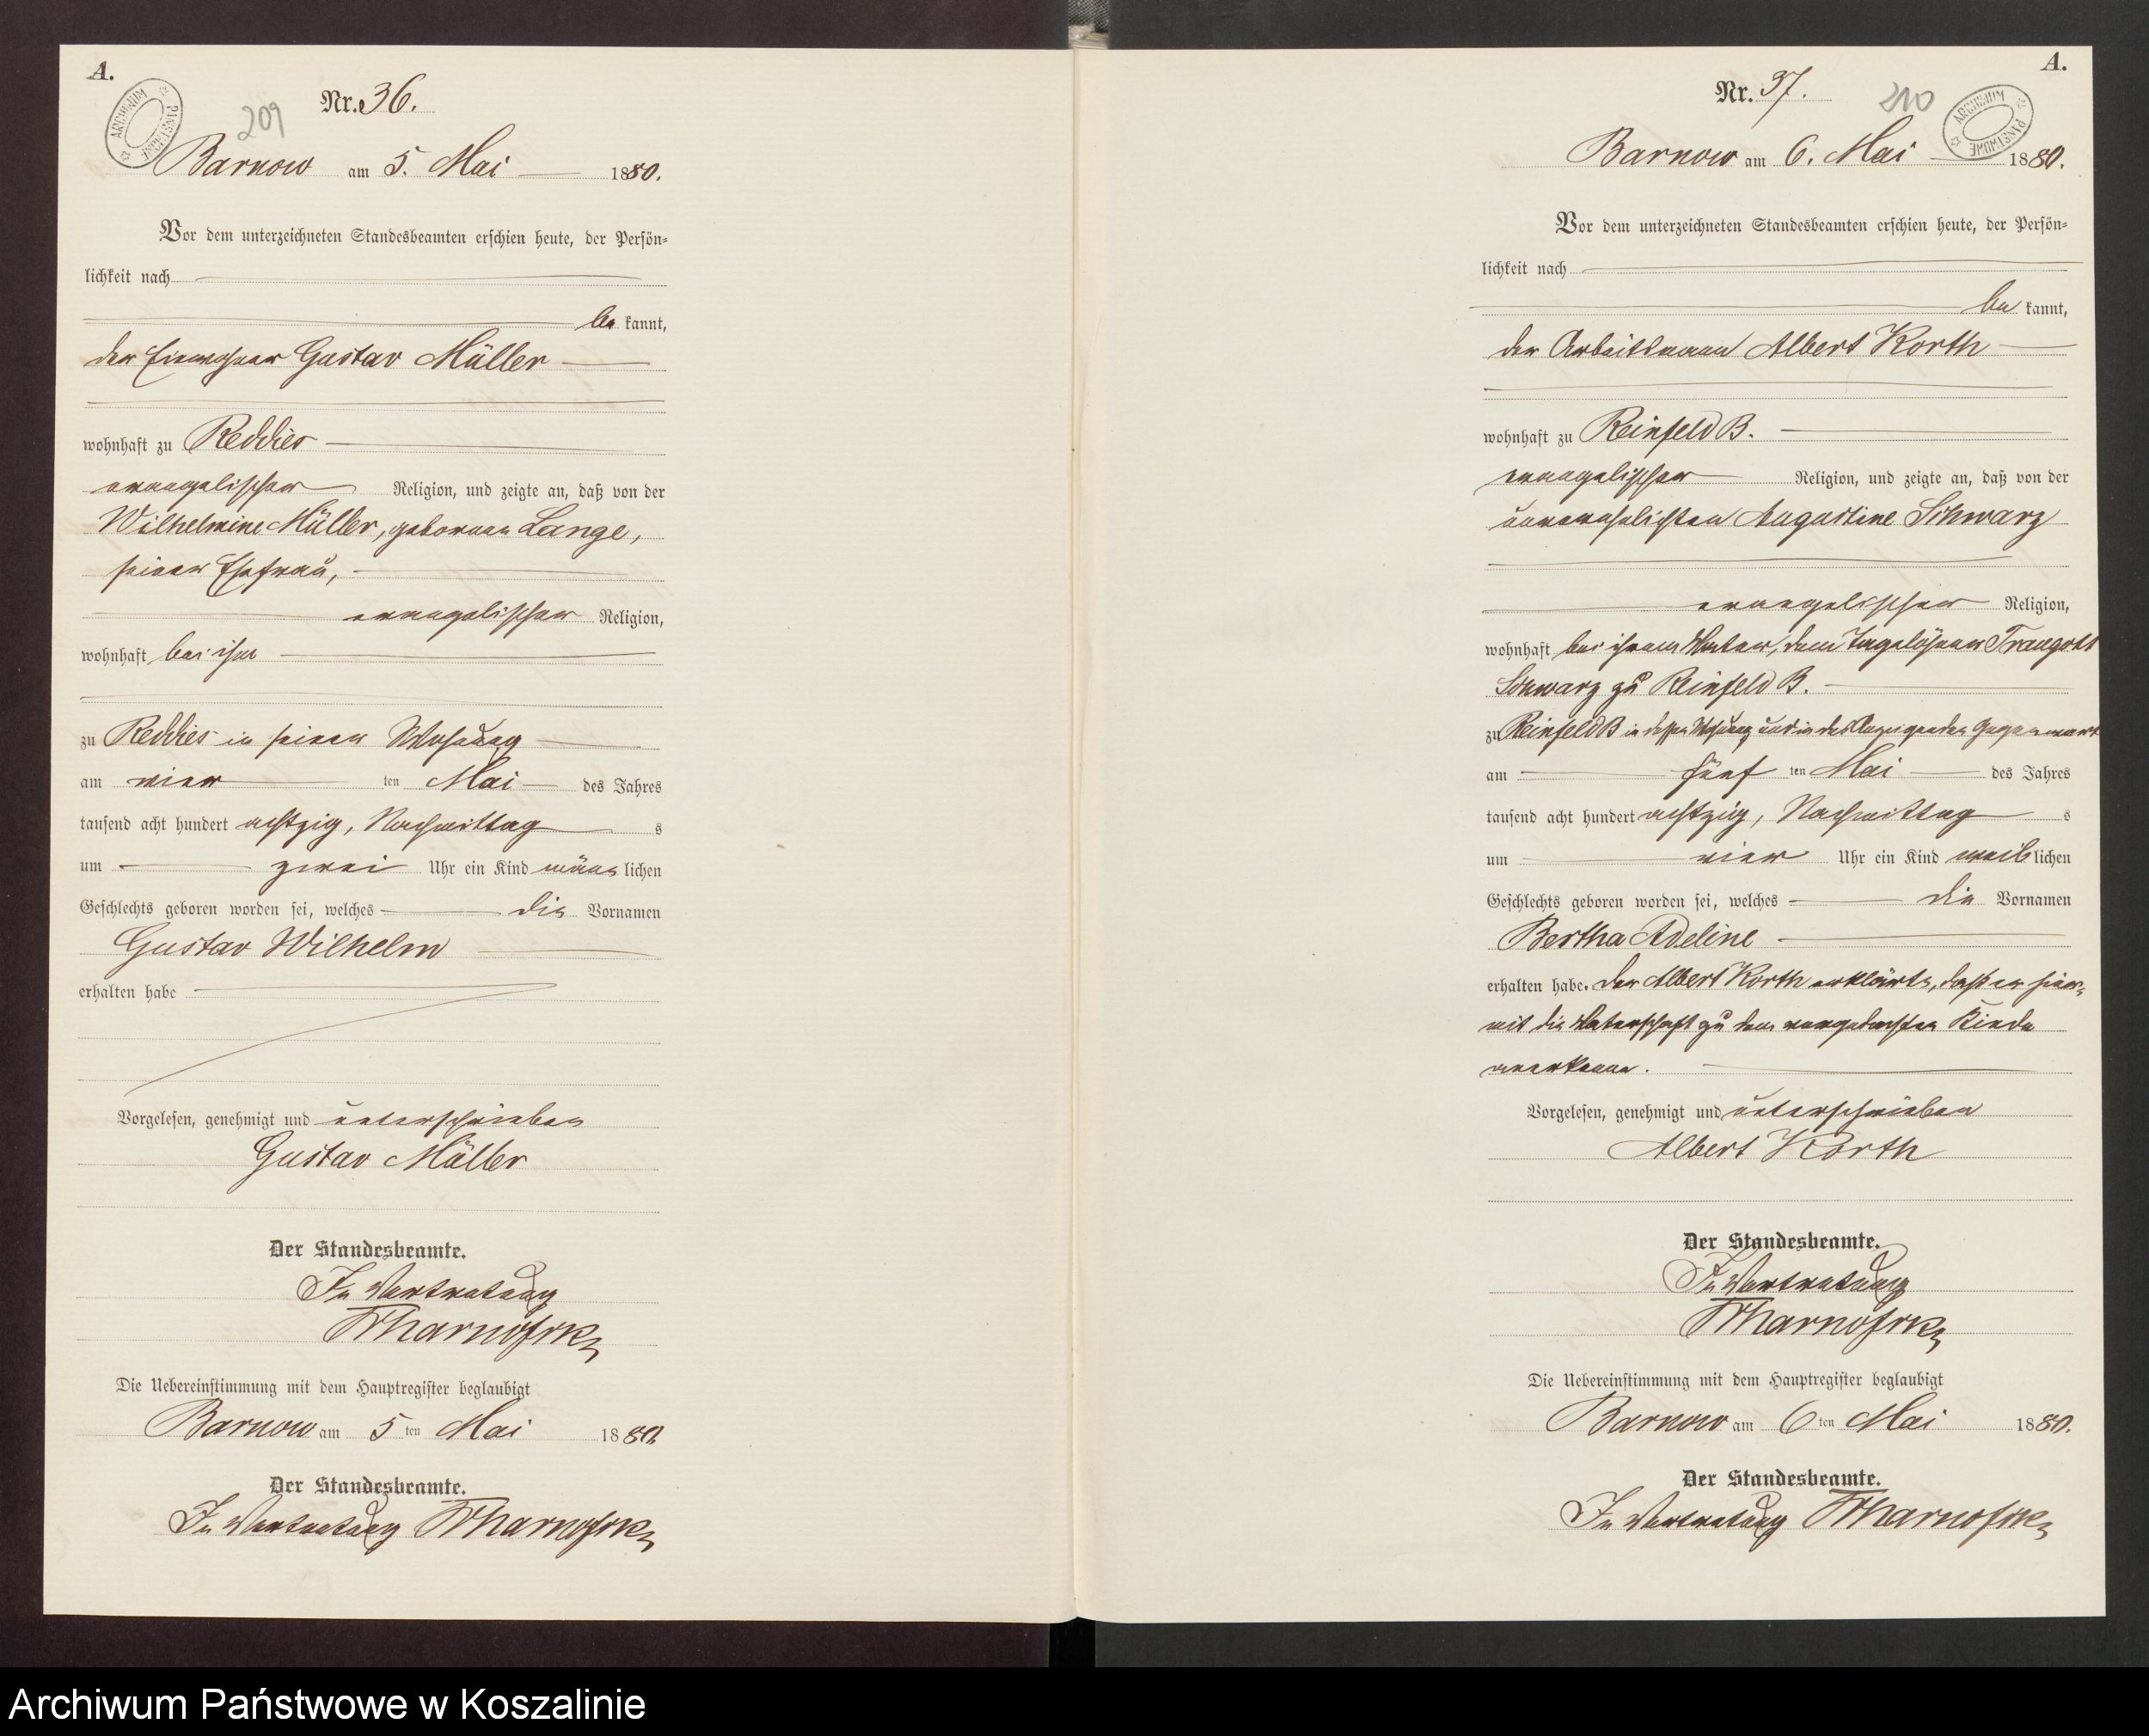 A.
ARCHIWUM PAŃSTWOWE
209
Nr. 36.
Barnow am 5. Mai 1880.
Vor dem unterzeichneten Standesbeamten erschien heute, der Persön=
lichkeit nach
be kannt,
der Einwohner Gustav Müller
wohnhaft zu Reddies
evangelischer Religion, und zeigte an, daß von der
Wilhelmine Müller, geborenen Lange,
seiner Ehefrau,
evangelischer Religion,
wohnhaft bei ihm
zu Reddies in seiner Wohnung
am vier ten Mai des Jahres
tausend acht hundert achtzig, Nachmittag s
um zwei Uhr ein Kind männ lichen
Geschlechts geboren worden sei, welches die Vornamen
Gustav Wilhelm
erhalten habe
Vorgelesen, genehmigt und unterschrieben
Gustav Müller
Der Standesbeamte.
In Vertretung
Die Uebereinstimmung mit dem Hauptregister beglaubigt
Barnow am 5 ten Mai 1880.
Der Standesbeamte.
In Vertretung
A.
ARCHIWUM PAŃSTWOWE
210
Nr. 37.
Barnow am 6. Mai 1880.
Vor dem unterzeichneten Standesbeamten erschien heute, der Persön=
lichkeit nach
be kannt,
der Arbeitsmann Albert Korth
wohnhaft zu Reinfeld B.
evangelischer Religion, und zeigte an, daß von der
unverehelichten Augustine Schwarz
evangelischer Religion,
wohnhaft bei ihrem Vater, dem Tagelöhner Traugott
Schwarz zu Reinfeld B.
zu Reinfeld B in dessen Wohnung und in des Anzeigenden Gegenwart
am fünf ten Mai des Jahres
tausend acht hundert achtzig, Nachmittag s
um vier Uhr ein Kind weib lichen
Geschlechts geboren worden sei, welches die Vornamen
Bertha Adeline
erhalten habe. Der Albert Korth erklärte, daß er hier=
mit die Vaterschaft zu dem vorgedachten Kinde
anerkenne.
Vorgelesen, genehmigt und unterschrieben
Albert Korth
Der Standesbeamte.
In Vertretung
Die Uebereinstimmung mit dem Hauptregister beglaubigt
Barnow am 6 ten Mai 1880.
Der Standesbeamte.
In Vertretung
Archiwum Państwowe w Koszalinie